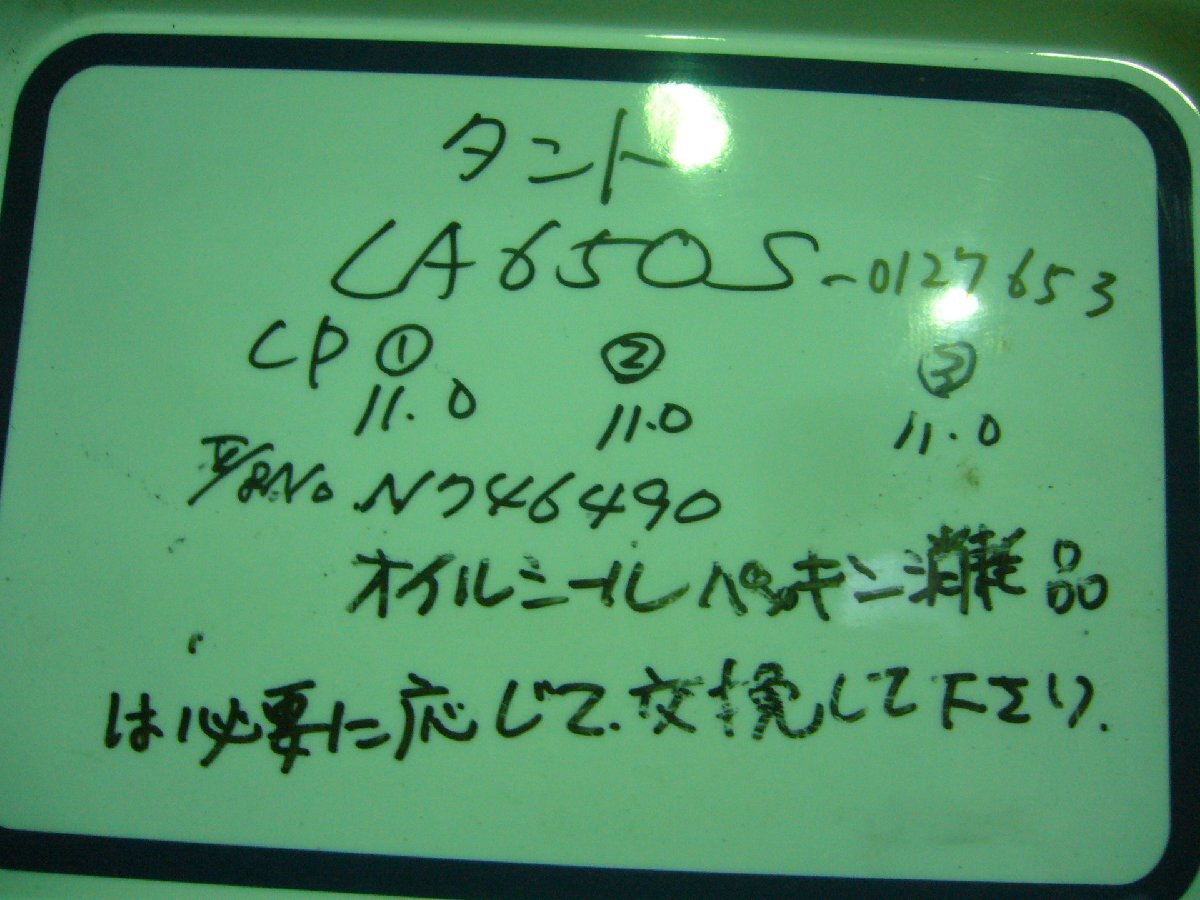 タント
LA650S-0127653
CP ① ② ③
11.0 11.0 11.0
E/gNo N746490
オイルシールパッキン消耗品
は必要に応じて.交換して下さい.